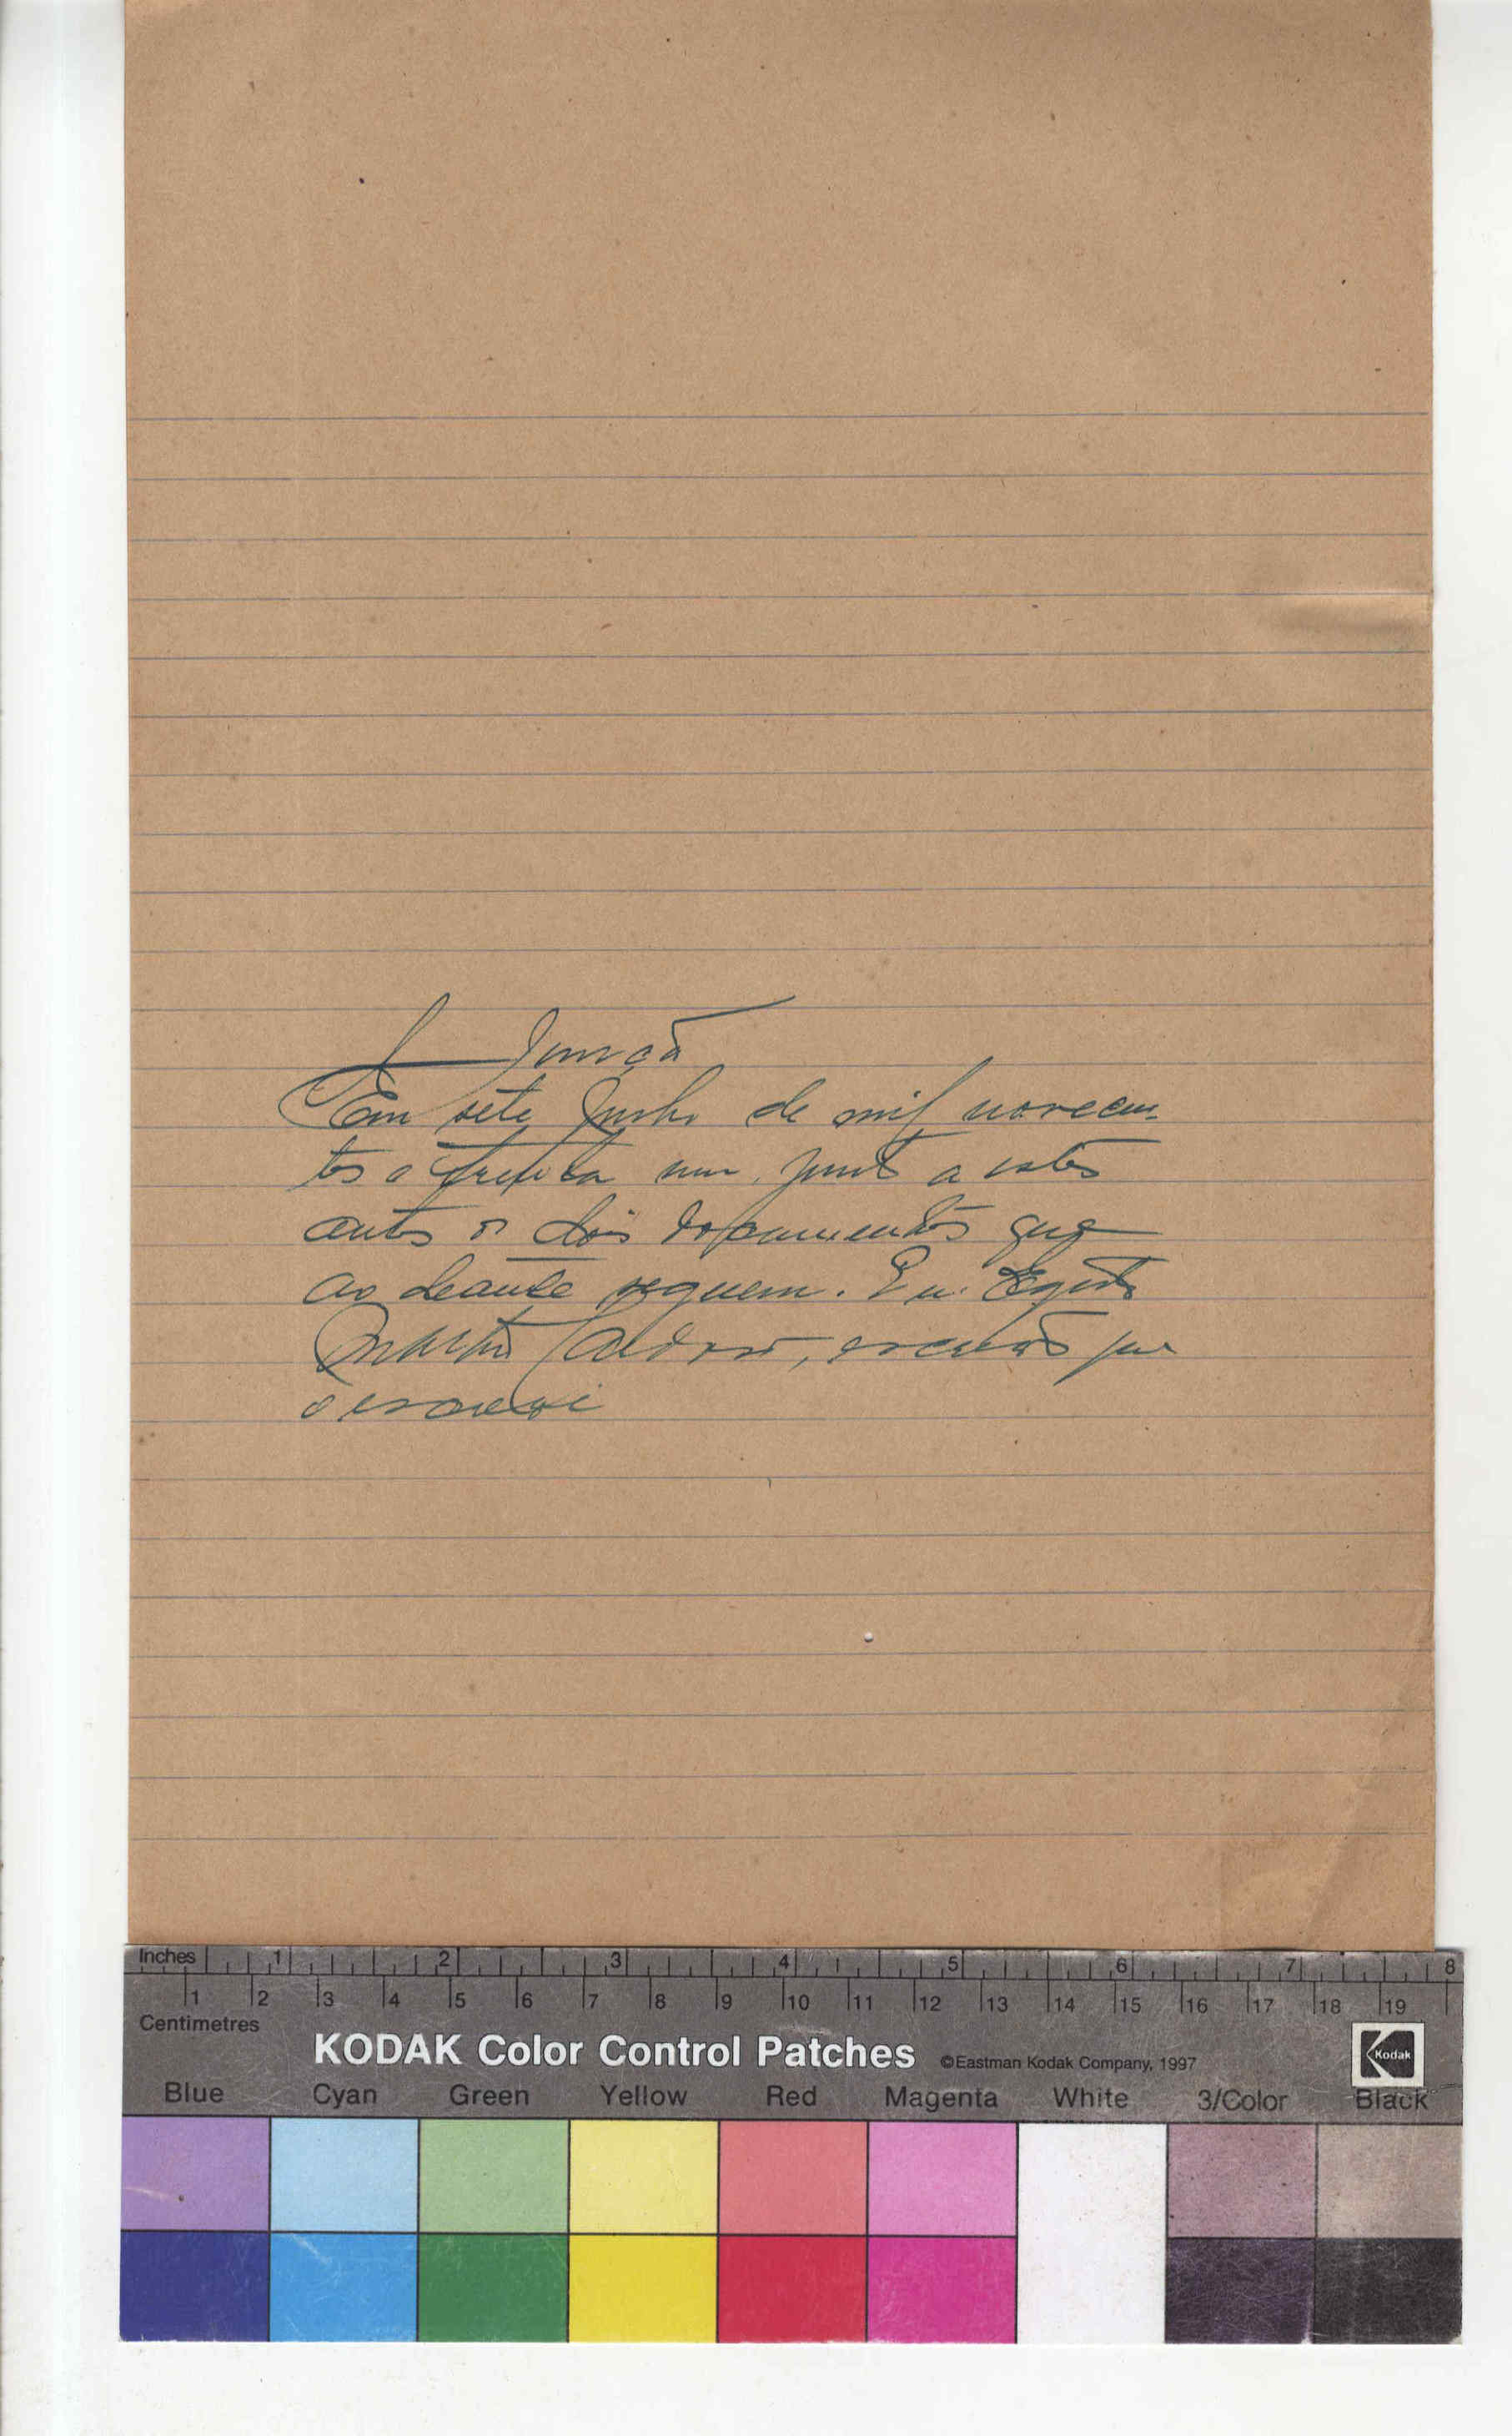 Junção
Em sete Junho de mil novecen-
tos e trinta um, junto a estes
autos os dois documentos que
ao deante seguem. Eu Egisto
Cardoso, escrivão que
o escrevi
Inches 1 2 3 4 5 6 7 8
1 2 3 4 5 6 7 8 9 10 11 12 13 14 15 16 17 18 19
Centimetres
KODAK Color Control Patches ©Eastman Kodak Company, 1997 Kodak
Blue Cyan Green Yellow Red Magenta White 3/Color Black